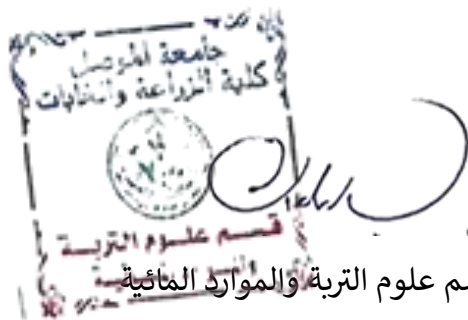 جامعة الموصل
كلية الزراعة والغابات
قسم علوم التربة
م علوم التربة والموارد المائية